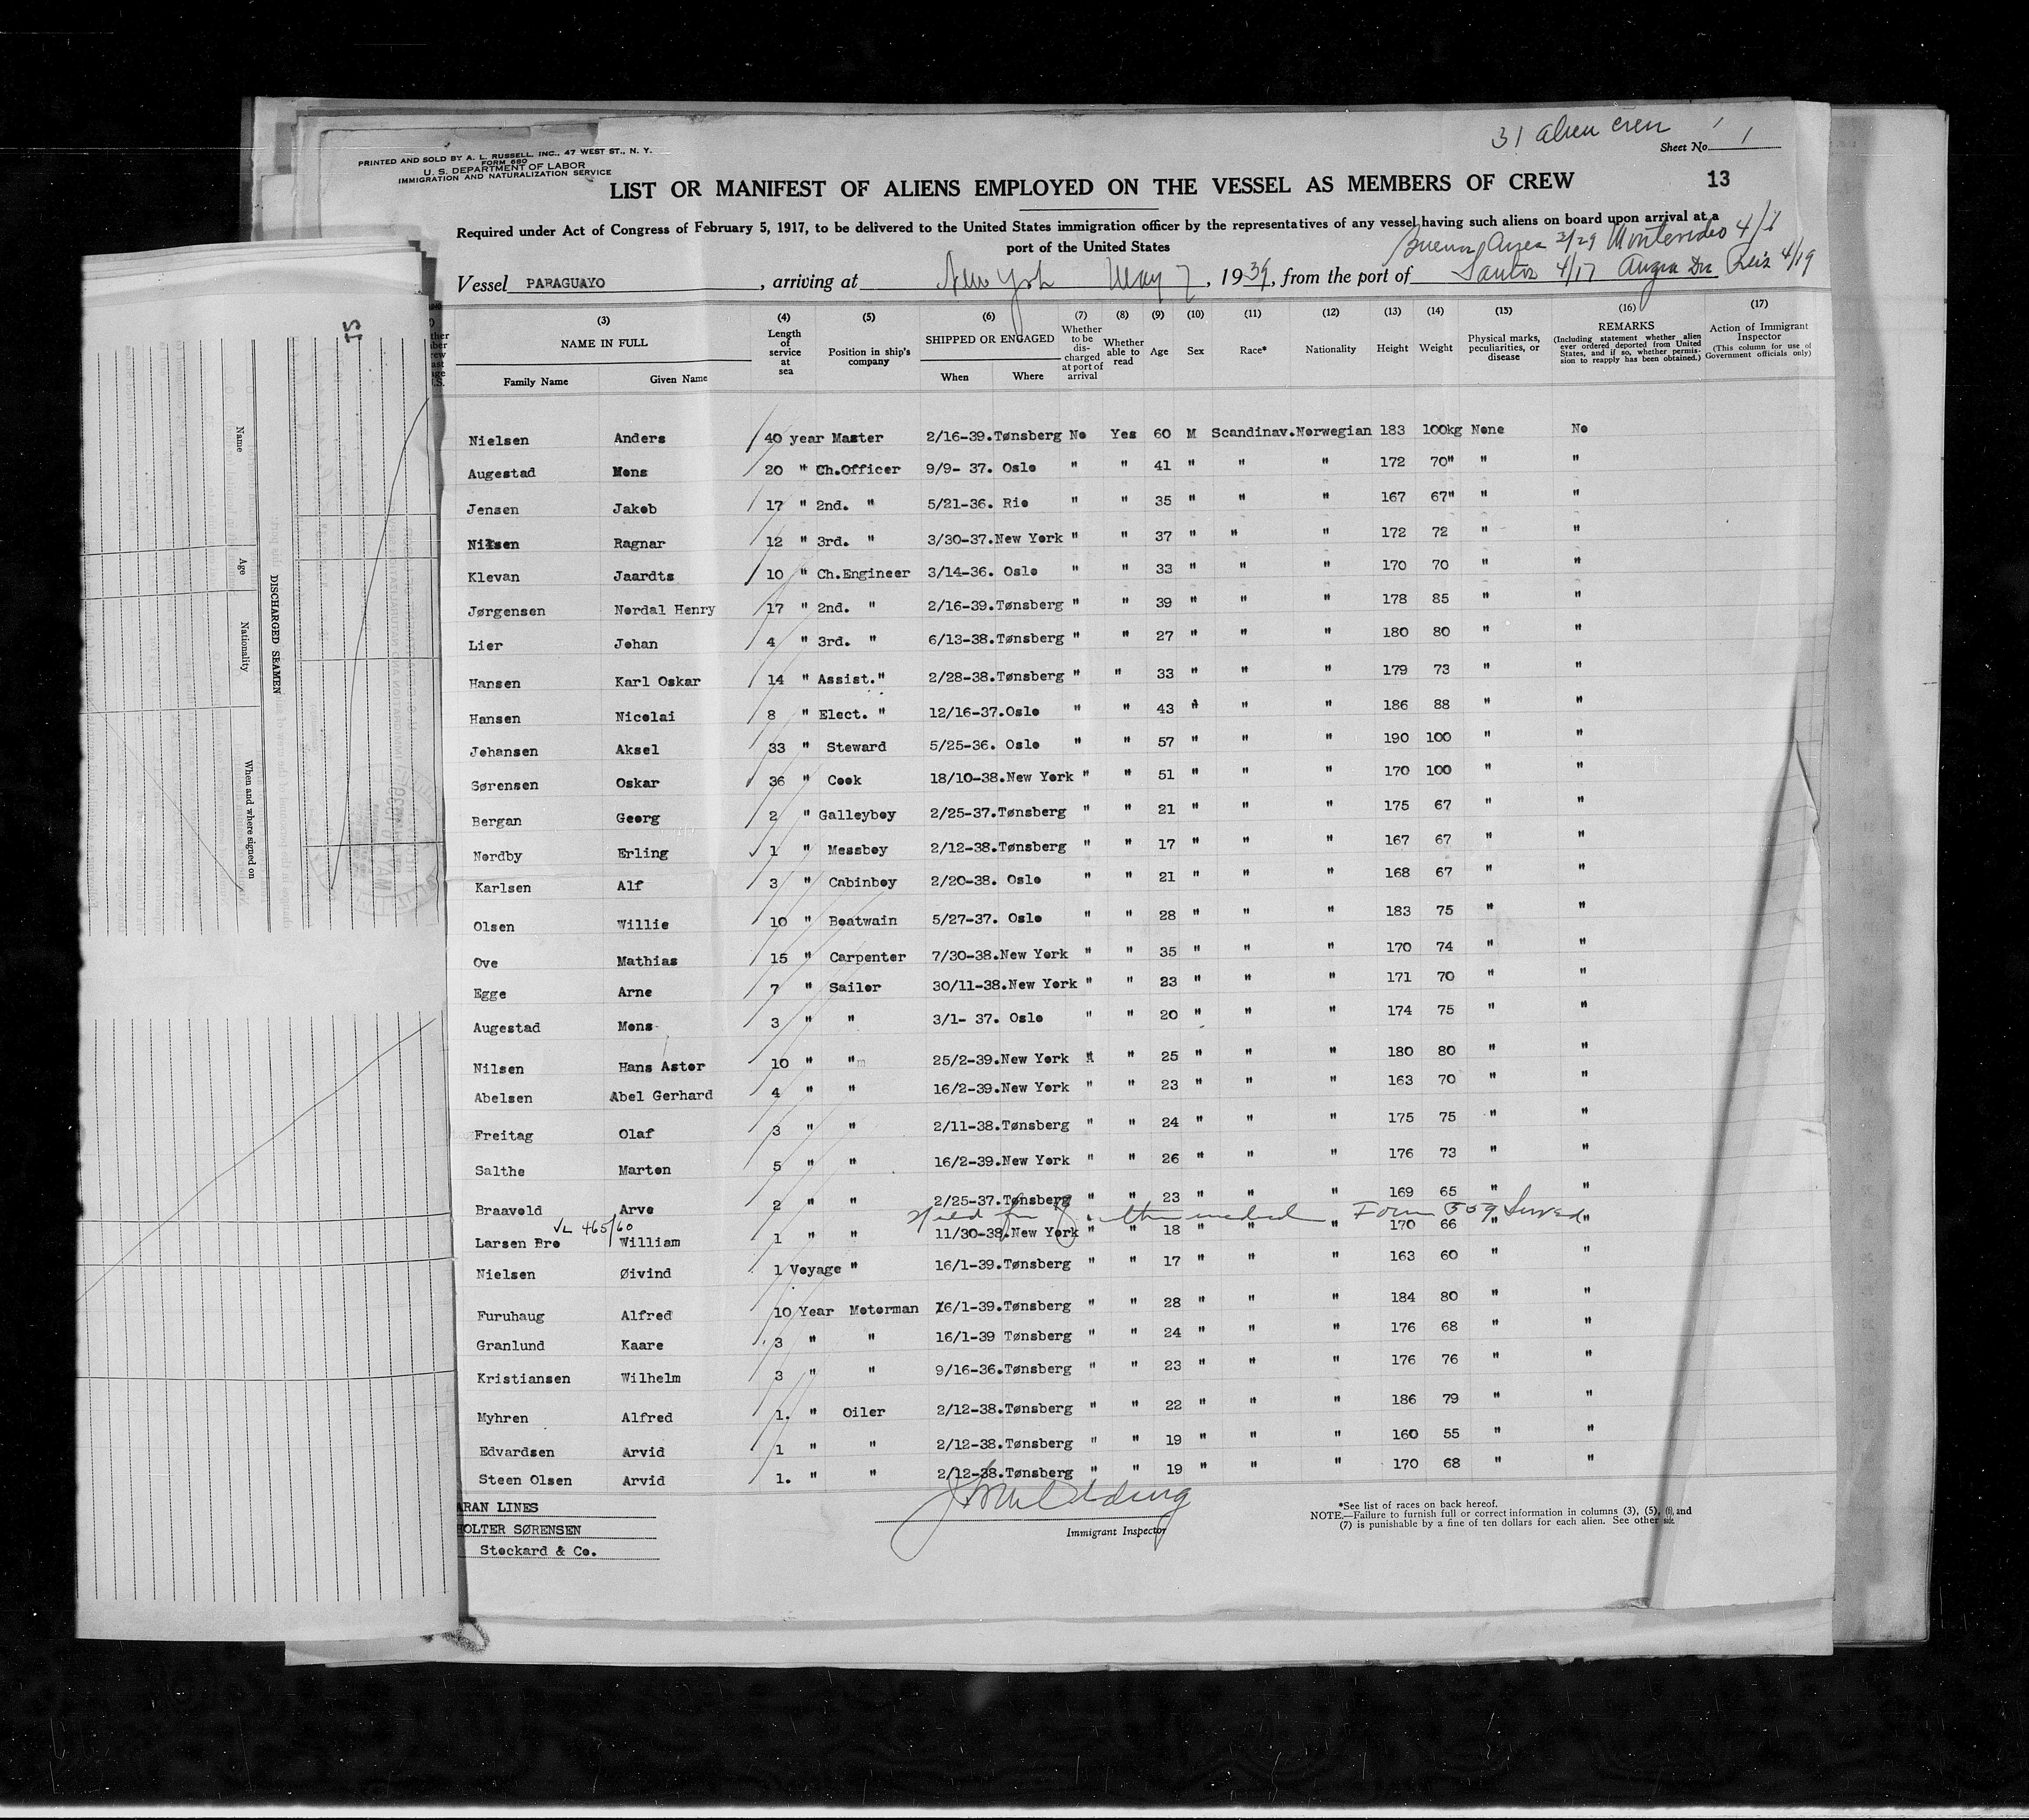 31 alien crew
PRINTED AND SOLD BY A. L. RUSSELL, INC., 47 WEST ST., N. Y.
FORM 680
U. S. DEPARTMENT OF LABOR
IMMIGRATION AND NATURALIZATION SERVICE
Sheet No. 1
LIST OR MANIFEST OF ALIENS EMPLOYED ON THE VESSEL AS MEMBERS OF CREW 13
Required under Act of Congress of February 5, 1917, to be delivered to the United States immigration officer by the representatives of any vessel having such aliens on board upon arrival at a
port of the United States
Buenos Aires 3/29 Montevideo
Vessel PARAGUAYO, arriving at New York May 7, 1939, from the port of Santos 4/17 Angra Dos Reis 4/19
(3) (4) (5) (6) (7) (8) (9) (10) (11) (12) (13) (14) (15) (16) (17)
NAME IN FULL Length of service at sea Position in ship's company SHIPPED OR ENGAGED Whether to be discharged at port of arrival Whether able to read Age Sex Race* Nationality Height Weight Physical marks, peculiarities, or disease REMARKS (Including statement whether alien ever ordered deported from United States, and if so, whether permission to reapply has been obtained.) Action of Immigrant Inspector (This column for use of Government officials only)
Family Name Given Name When Where
Nielsen Anders 40 year Master 2/16-39.Tønsberg No Yes 60 M Scandinav.Norwegian 183 100kg None No
Augestad Mons 20 " Ch.Officer 9/9- 37. Oslo " " 41 " " " 172 70" " "
Jensen Jakob 17 " 2nd. " 5/21-36. Rio " " 35 " " " 167 67" " "
Nilsen Ragnar 12 " 3rd. " 3/30-37.New York " " 37 " " " 172 72 " "
Klevan Jaardts 10 " Ch.Engineer 3/14-36. Oslo " " 33 " " " 170 70 " "
Jørgensen Nordal Henry 17 " 2nd. " 2/16-39.Tønsberg " " 39 " " " 178 85 " "
Lier Johan 4 " 3rd. " 6/13-38.Tønsberg " " 27 " " " 180 80 " "
Hansen Karl Oskar 14 " Assist." 2/28-38.Tønsberg " " 33 " " " 179 73 " "
Hansen Nicolai 8 " Elect. " 12/16-37.Oslo " " 43 " " " 186 88 " "
Johansen Aksel 33 " Steward 5/25-36. Oslo " " 57 " " " 190 100 " "
Sørensen Oskar 36 " Cook 18/10-38.New York " " 51 " " " 170 100 " "
Bergan Georg 2 " Galleyboy 2/25-37.Tønsberg " " 21 " " " 175 67 " "
Nordby Erling 1 " Messboy 2/12-38.Tønsberg " " 17 " " " 167 67 " "
Karlsen Alf 3 " Cabinboy 2/20-38. Oslo " " 21 " " " 168 67 " "
Olsen Willie 10 " Boatwain 5/27-37. Oslo " " 28 " " " 183 75 " "
Ove Mathias 15 " Carpenter 7/30-38.New York " " 35 " " " 170 74 " "
Egge Arne 7 " Sailor 30/11-38.New York " " 23 " " " 171 70 " "
Augestad Mons 3 " " 3/1- 37. Oslo " " 20 " " " 174 75 " "
Nilsen Hans Astor 10 " " 25/2-39.New York " " 25 " " " 180 80 " "
Abelsen Abel Gerhard 4 " " 16/2-39.New York " " 23 " " " 163 70 " "
Freitag Olaf 3 " " 2/11-38.Tønsberg " " 24 " " " 175 75 " "
Salthe Marton 5 " " 16/2-39.New York " " 26 " " " 176 73 " "
Braavold Arve 2 " " 2/25-37.Tønsberg " " 23 " " " 169 65 " "
VL 465/60 Held for Form 509 Served
Larsen Bro William 1 " " 11/30-38.New York " " 18 " " " 170 66 " "
Nielsen Øivind 1 Voyage " 16/1-39.Tønsberg " " 17 " " " 163 60 " "
Furuhaug Alfred 10 Year Motorman 16/1-39.Tønsberg " " 28 " " " 184 80 " "
Granlund Kaare 3 " " 16/1-39 Tønsberg " " 24 " " " 176 68 " "
Kristiansen Wilhelm 3 " " 9/16-36.Tønsberg " " 23 " " " 176 76 " "
Myhren Alfred 1. " Oiler 2/12-38.Tønsberg " " 22 " " " 186 79 " "
Edvardsen Arvid 1 " " 2/12-38.Tønsberg " " 19 " " " 160 55 " "
Steen Olsen Arvid 1. " " 2/12-38.Tønsberg " " 19 " " " 170 68 " "
ARAN LINES
HOLTER SØRENSEN
Stockard & Co.
Immigrant Inspector
*See list of races on back hereof.
NOTE.—Failure to furnish full or correct information in columns (3), (5), (6), and
(7) is punishable by a fine of ten dollars for each alien. See other side.
DISCHARGED SEAMEN
Name
Age
Nationality
When and where signed on